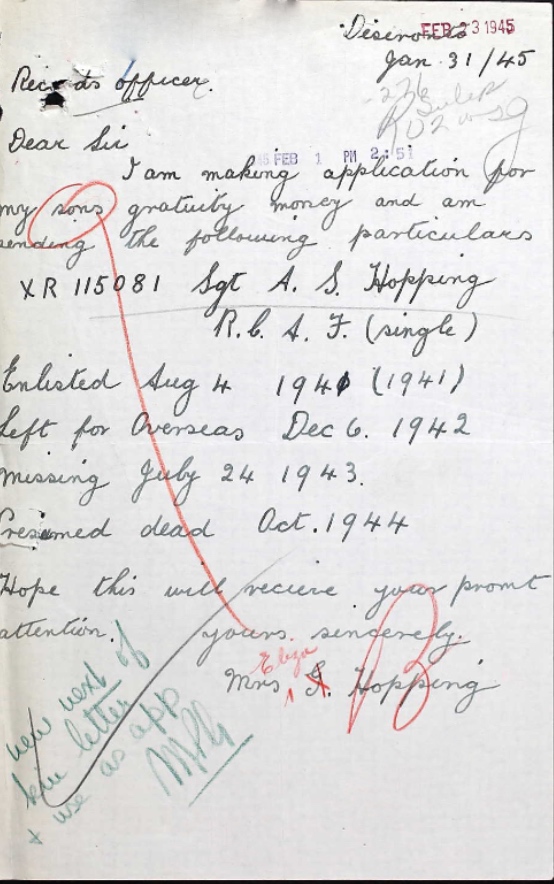 Deseronto
FEB 23 1945
Jan. 31/45
Records officer.
Dear Sir
FEB 1 PM 2:51
I am making application for
my sons gratuity money and am
sending the following particulars
XR 115081 Sgt A. S. Hopping
R.C.A.F. (single)
Enlisted Aug 4 1941 (1941)
Left for Overseas Dec 6. 1942
missing July 24 1943.
Presumed dead Oct. 1944
Hope this will recieve your promt
attention.
yours sincerely.
Eliza
Mrs Hopping
B
new next of
kin letter
+ use as app